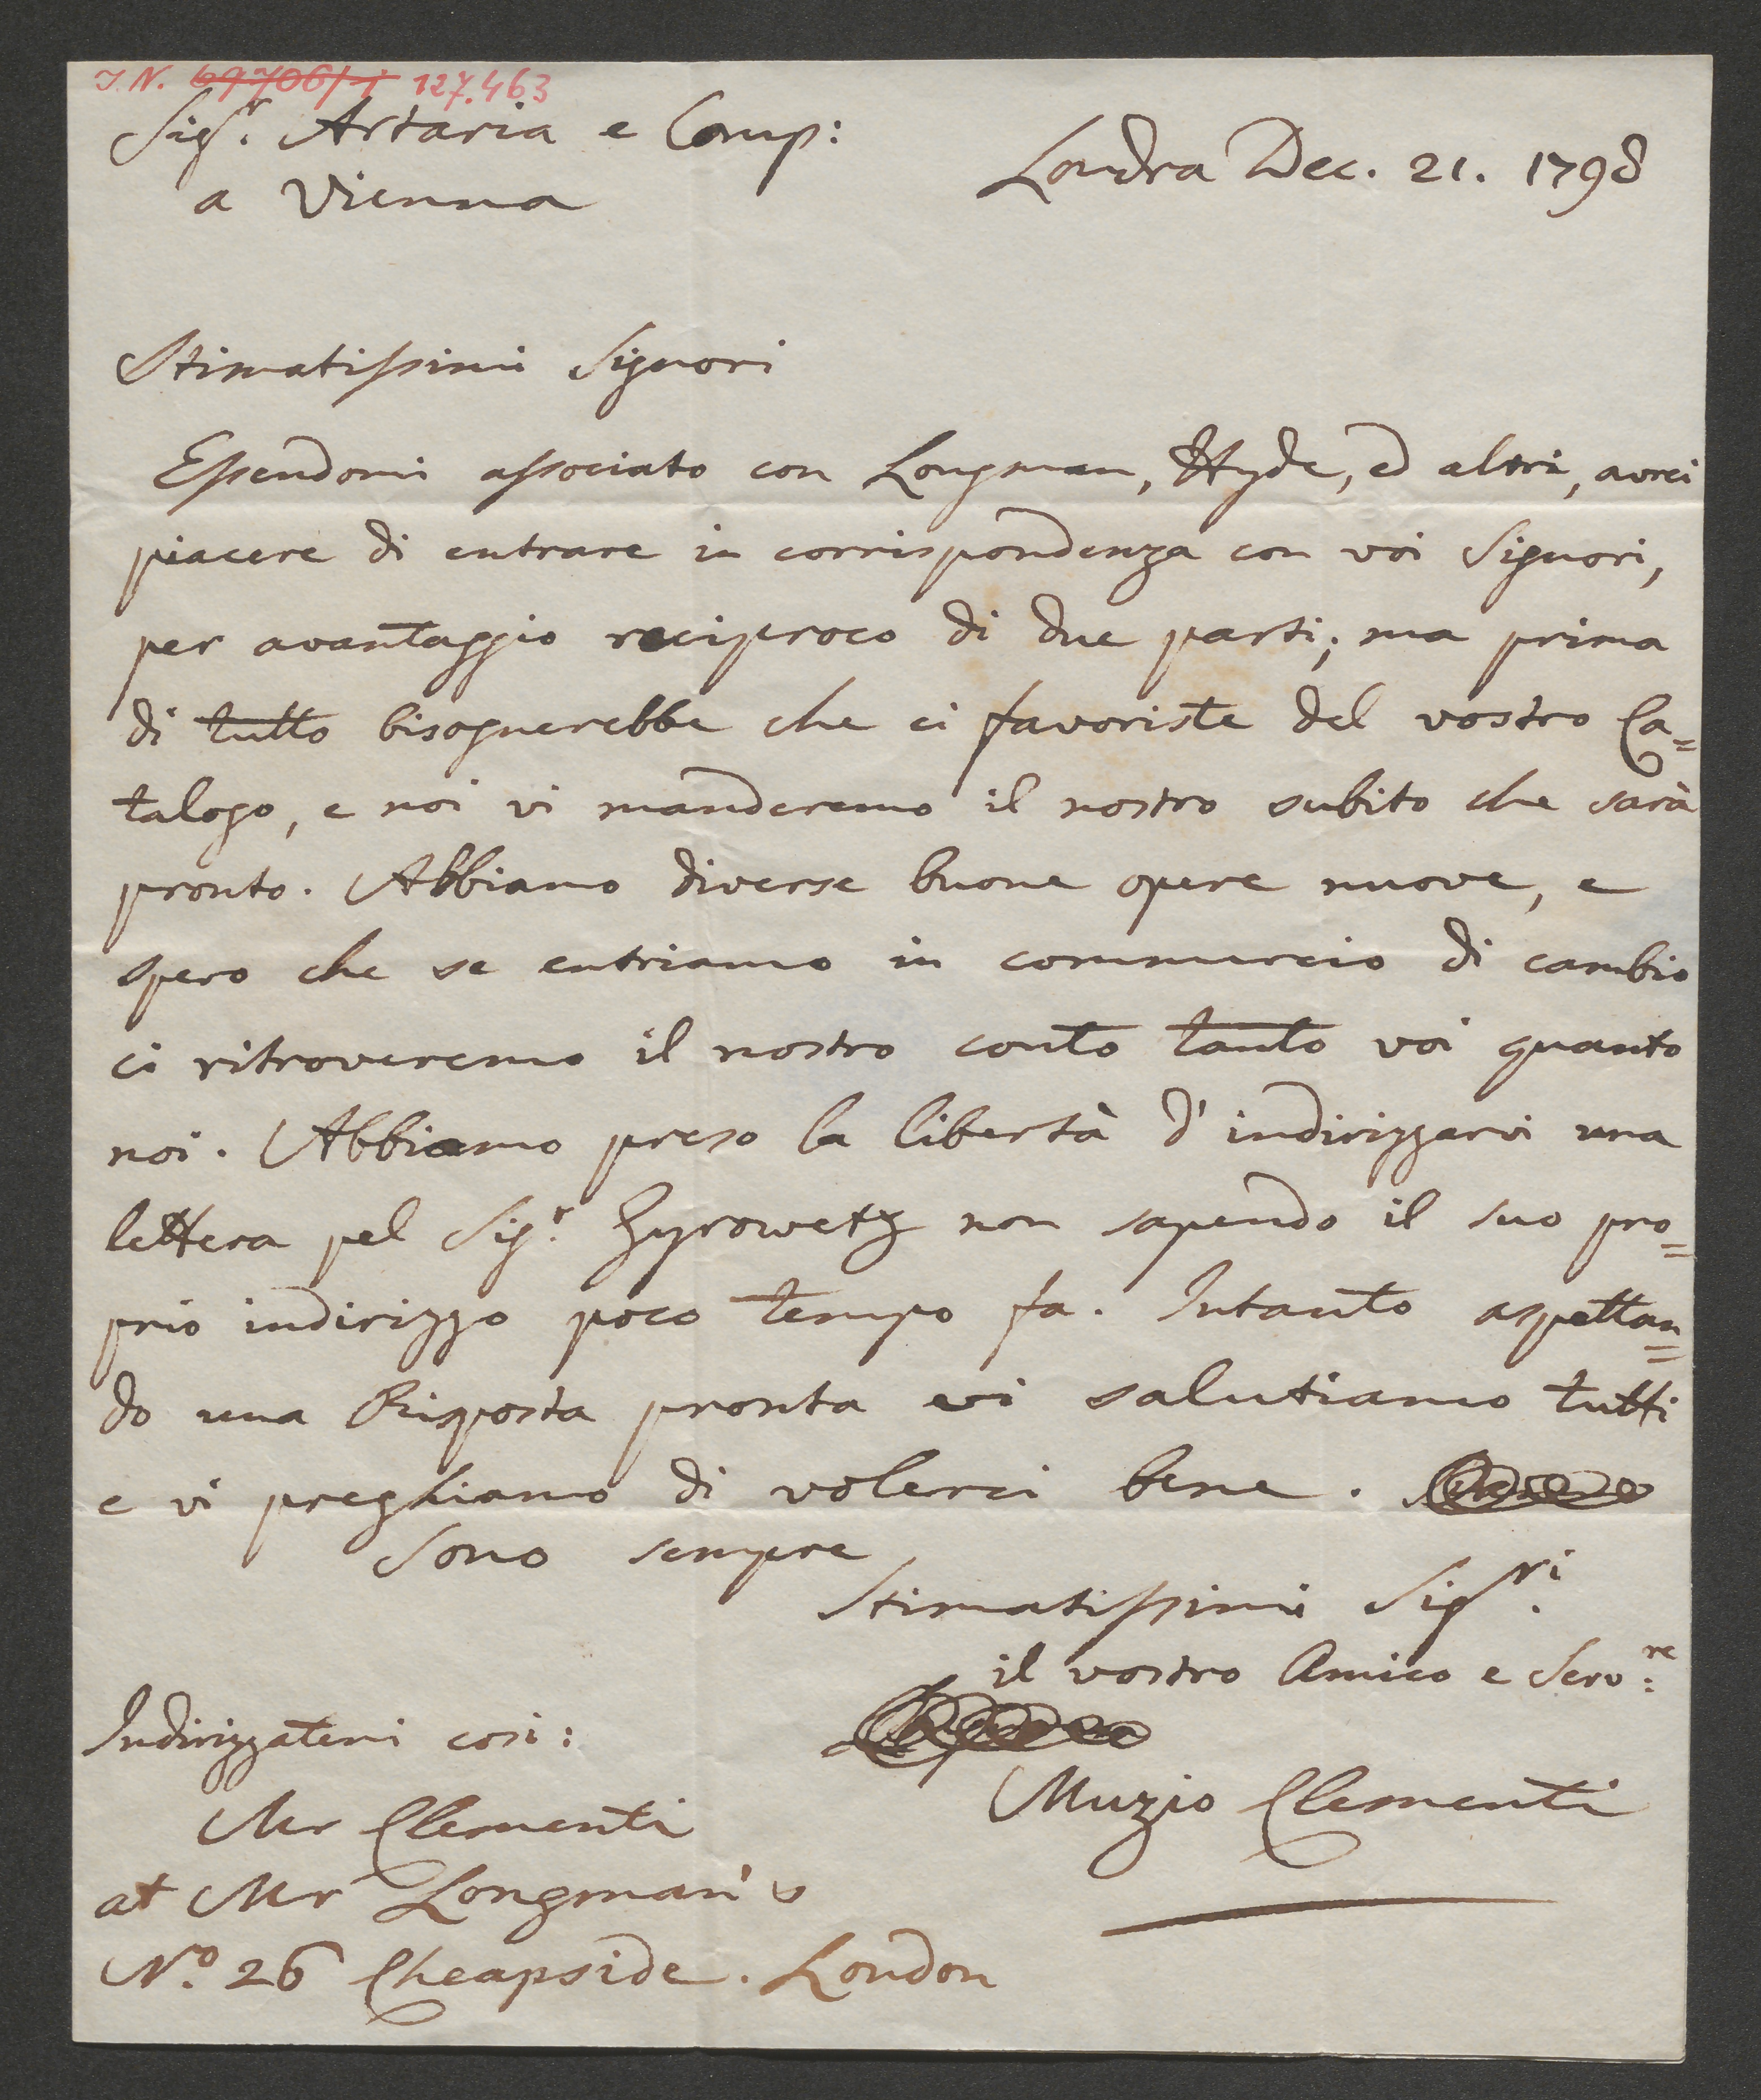 I. N. 69706/1 127.463
Sig.r Artaria e Comp:
a Vienna
Londra Dec. 21. 1798
Stimatissimi Signori
Essendomi associato con Longman, Hyde, ed altri, avrei
piacere di entrare in corrispondenza con voi Signori,
per avantaggio reciproco di due parti; ma prima
di tutto bisognerebbe che ci favoriste del vostro Ca=
talogo, e noi vi manderemo il nostro subito che sarà
pronto. Abbiamo diverse buone opere nuove, e
spero che se entriamo in commercio di cambio
ci ritroveremo il nostro conto tanto voi quanto
noi. Abbiamo preso la libertà d'indirizzarvi una
lettera pel Sig.r Gyrowetz non sapendo il suo pro=
prio indirizzo poco tempo fa. Intanto aspettan=
do una Risposta pronta vi salutiamo tutti
e vi preghiamo di volerci bene.
Sono sempre
Stimatissimi Sig.ri
il vostro Amico e Serv:re
Indirizzatemi così:
Muzio Clementi
Mr Clementi
at Mr Longman's
No. 26 Cheapside. London